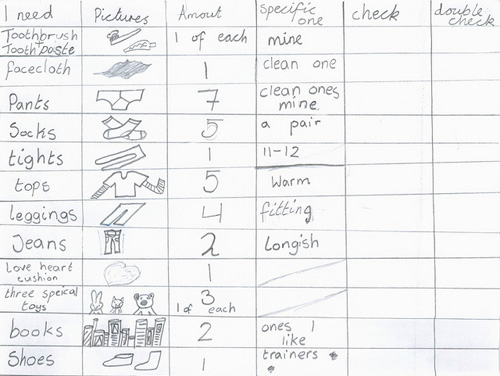 I need Pictures Amout specific one check double check
Toothbrush + Toothpaste 1 of each mine
facecloth 1 clean one
Pants 7 clean ones mine
Socks 5 a pair
tights 1 11-12
tops 5 Warm
leggings 4 fitting
Jeans 2 Longish
Love heart cushion 1
three speical toys 3 1 of each
books 2 ones I like
Shoes 1 trainers